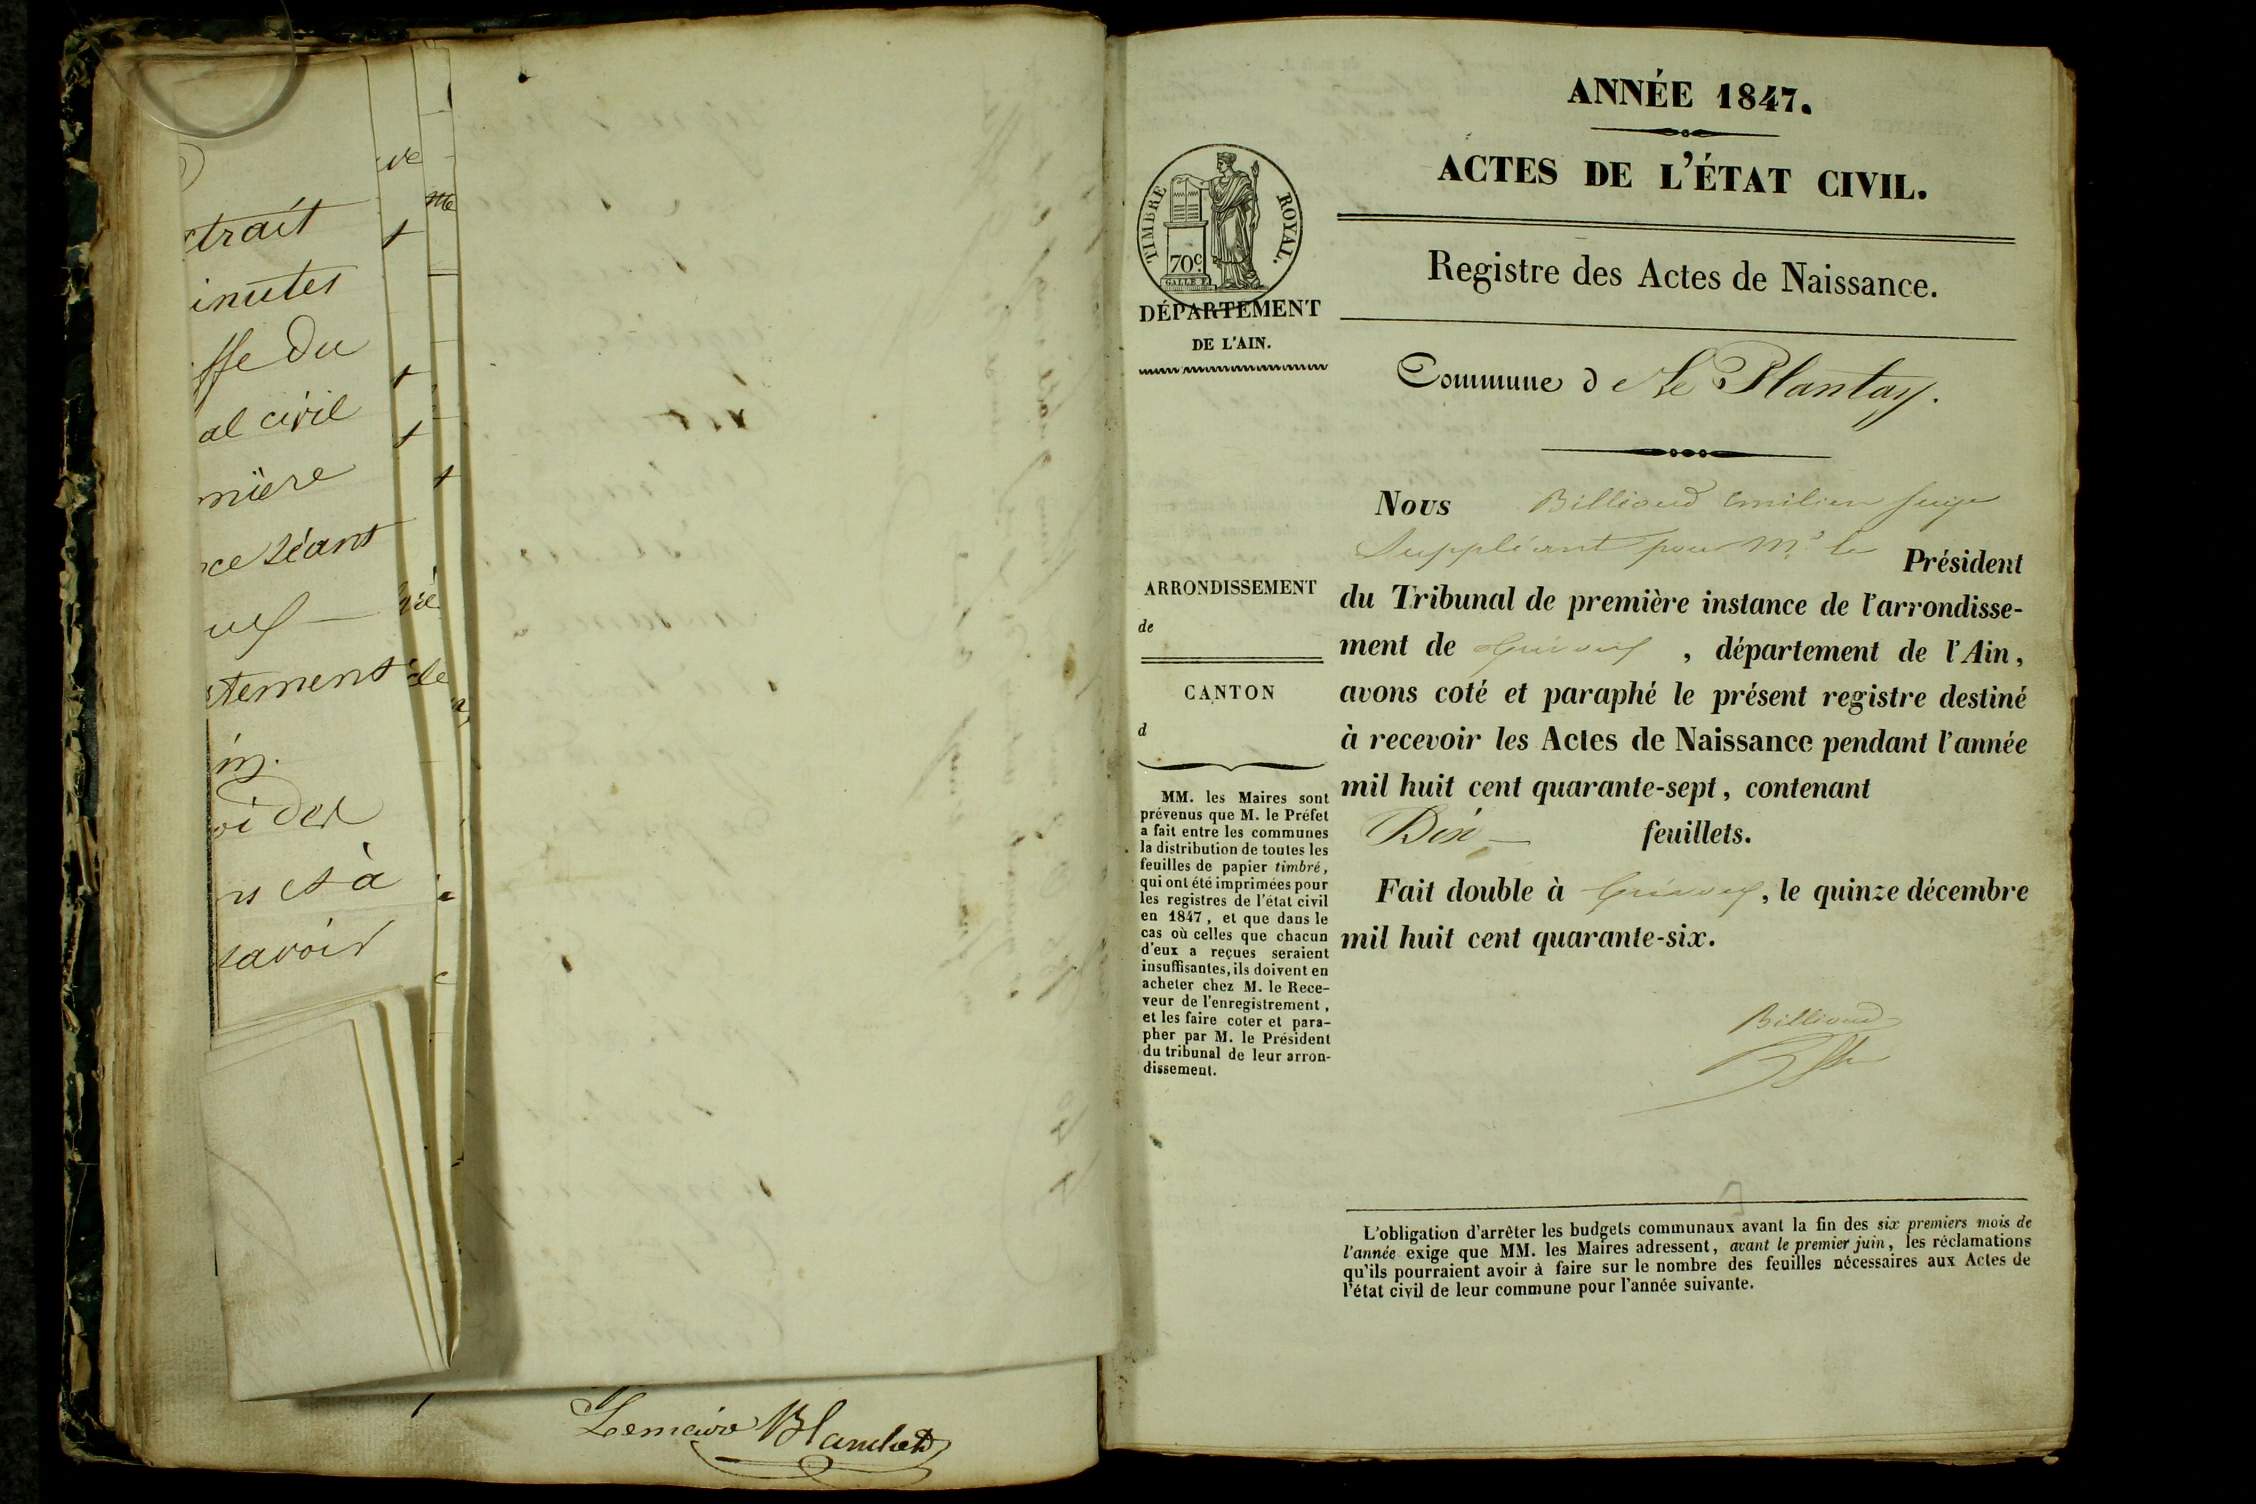 ctrait
inutes
ffe du
al civil
mière
ce séant
stement
savoir
Le maire Blanchet
ANNÉE 1847.
ACTES DE L'ÉTAT CIVIL.
TIMBRE ROYAL.
70c.
Registre des Actes de Naissance.
DÉPARTEMENT
DE L'AIN.
Commune d Le Plantay.
Nous Billioud Emilien juge
Suppléant pour Mr le Président
du Tribunal de première instance de l'arrondisse-
ment de Trévoux , département de l'Ain,
avons coté et paraphé le présent registre destiné
à recevoir les Actes de Naissance pendant l'année
mil huit cent quarante-sept, contenant
Dix feuillets.
Fait double à Trévoux, le quinze décembre
mil huit cent quarante-six.
Billioud
ARRONDISSEMENT
de
CANTON
d
MM. les Maires sont
prévenus que M. le Préfet
a fait entre les communes
la distribution de toutes les
feuilles de papier timbré,
qui ont été imprimées pour
les registres de l'état civil
en 1847, et que dans le
cas où celles que chacun
d'eux a reçues seraient
insuffisantes, ils doivent en
acheter chez M. le Rece-
veur de l'enregistrement,
et les faire coter et para-
pher par M. le Président
du tribunal de leur arron-
dissement.
L'obligation d'arrêter les budgets communaux avant la fin des six premiers mois de
l'année exige que MM. les Maires adressent, avant le premier juin, les réclamations
qu'ils pourraient avoir à faire sur le nombre des feuilles nécessaires aux Actes de
l'état civil de leur commune pour l'année suivante.